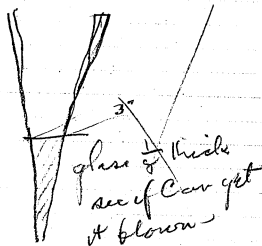 3"
glass 1/8 thick
see if Can get
it blown